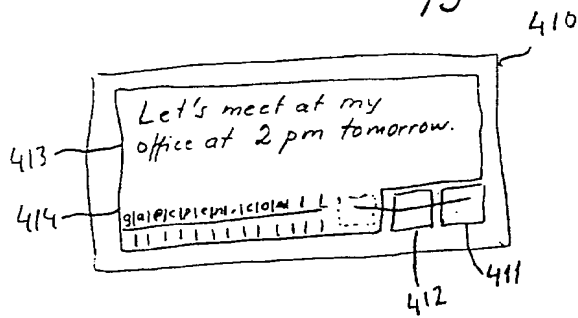 410
Let's meet at my
office at 2 pm tomorrow.
413
414
411
412